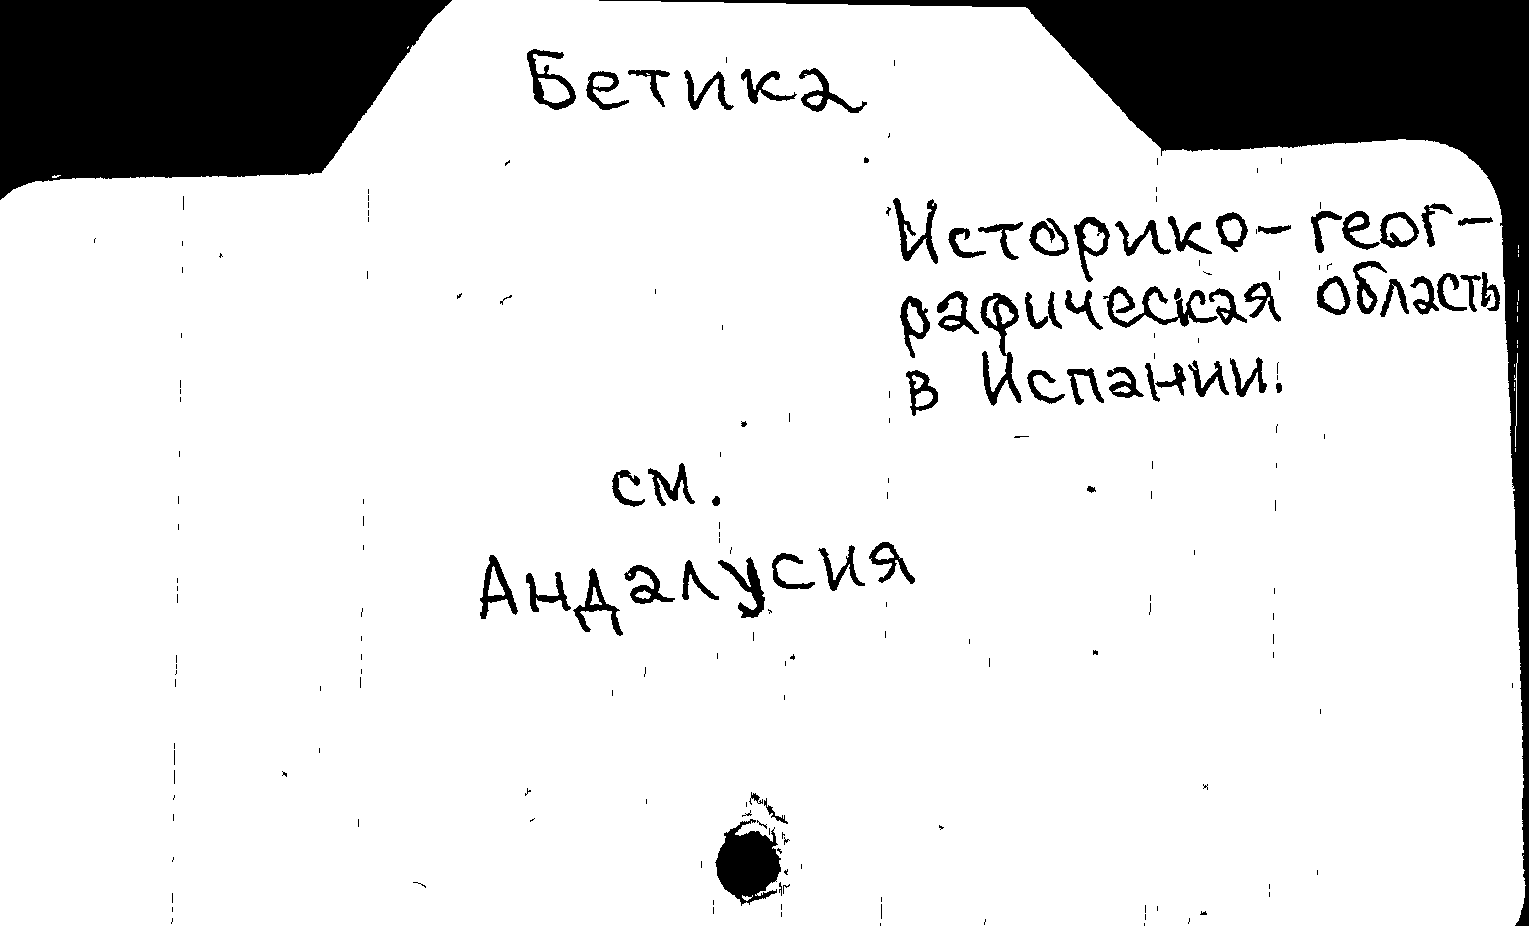 Бетика
Историко-геог-
рафическая область
в Испании.
см.
Андалусия